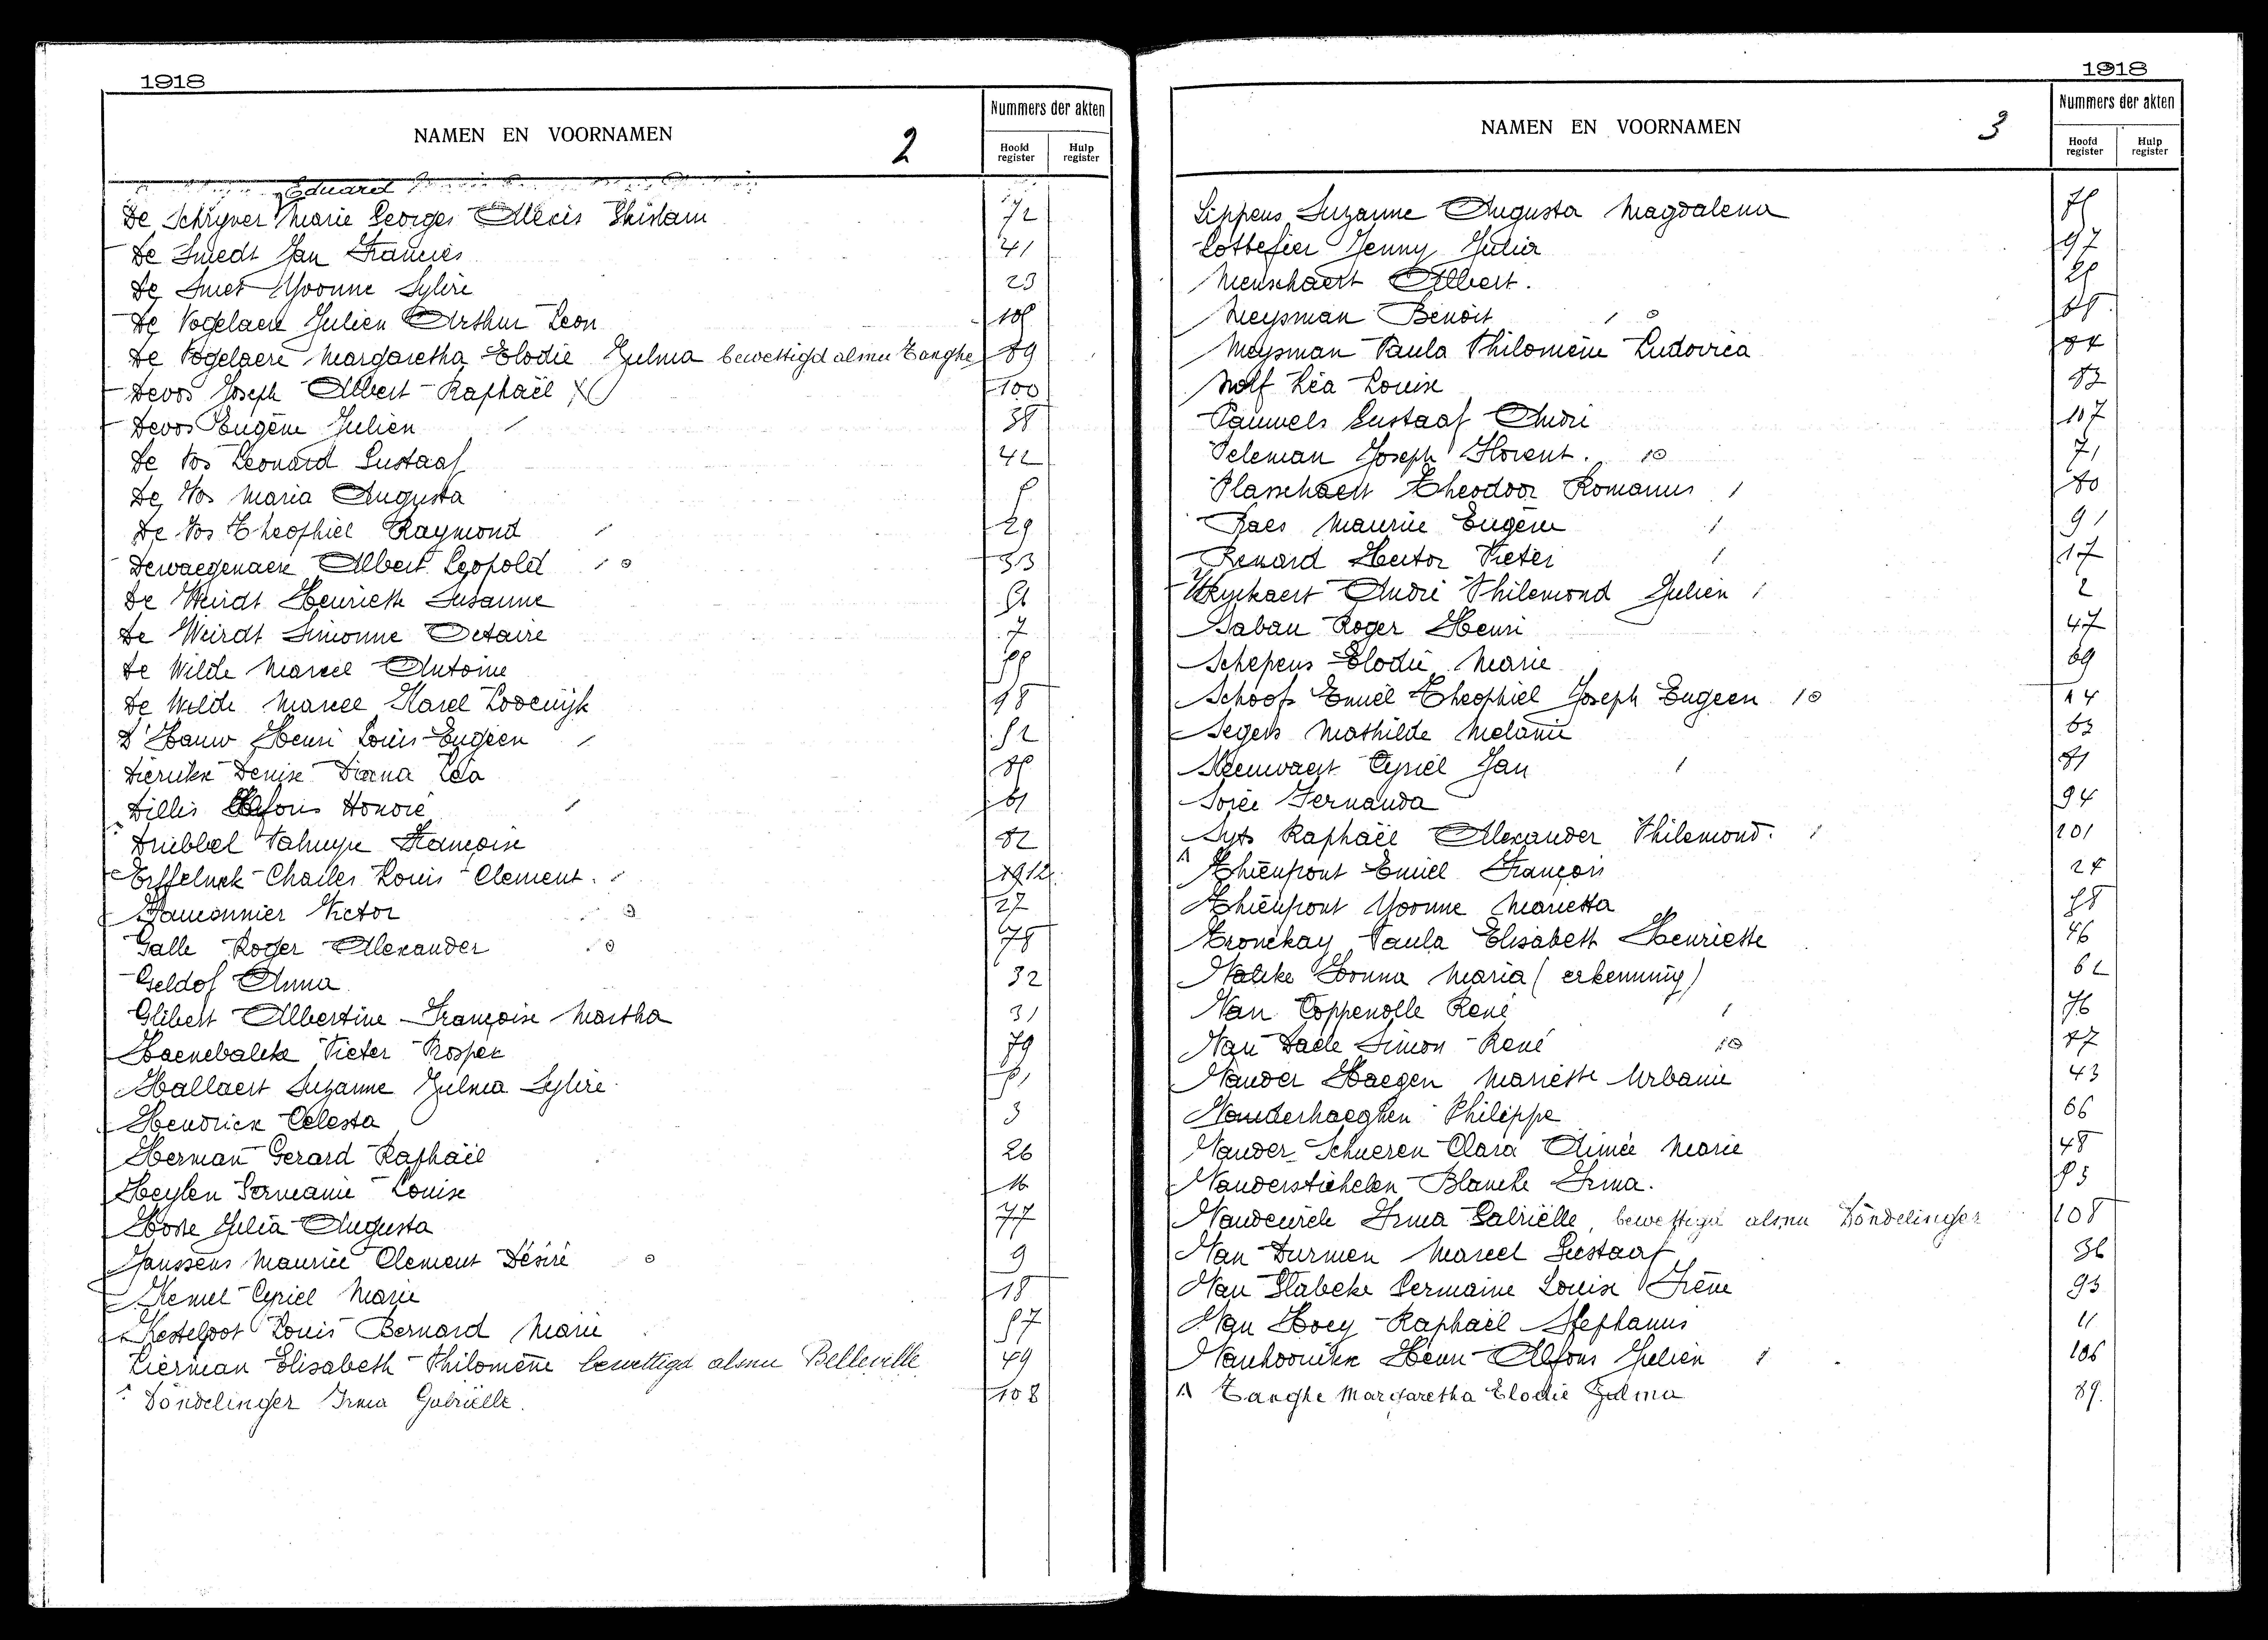 1918
NAMEN EN VOORNAMEN 2 Nummers der akten
Hoofd register Hulp register
Eduard
De Schryver Marie Georges Alexis Ghislain 72
De Smedt Jan Francies 41
De Smet Yvonne Sylvie 23
De Vogelaere Julien Arthur Leon 105
De Vogelaere Margaretha Elodie Zulma bewettigd alsnu Tanghe 89
Devos Joseph Albert Raphaël 100
Devos Eugène Julien 38
De Vos Leonard Gustaaf 42
De Vos Maria Augusta 5
De Vos Theophiel Raymond 29
Dewaegenaere Albert Leopold 33
De Weirdt Henriette Susanne
De Weirdt Simonne Octaire 7
De Wilde Marcel Antoine
De Wilde Marcel Karel Lodewijk 98
D'Hauw Henri Louis Eugeen 52
Dierickx Denise Diana Léa
Dillis Alfons Honoré 61
Driebbel Françoise 82
Charles Louis Clement
Victor 27
Galle Roger Alexander 78
Geldof Anna 32
Glibert Albertine Françoise Martha 31
Haenebalcke Pieter Prosper 79
Hallaert Suzanne Zulma Sylvie 51
Hendrick Celesta 3
Herman Gerard Raphaël 26
Heylen Germanie Louise 16
Hoste Julia Augusta 77
Janssens Maurice Clement Désiré 9
Kemel Cyriel Marie 18
Kesteloot Louis Bernard Marie 57
Lierman Elisabeth Philomène bewettigd alsnu Belleville 49
Döndelinger Irma Gabriëlle. 108
1918
NAMEN EN VOORNAMEN 3 Nummers der akten
Hoofd register Hulp register
Lippens Suzanne Augusta Magdalena 75
Lottefier Jenny Julia 97
Menschaert Albert.
Meysman Benoit
Meysman Paula Philomène Ludovica 84
Nolf Léa Louise 83
Pauwels Gustaaf André 107
Peleman Joseph Florent. 71
Plasschaert Theodoor Romanus 80
Raes Maurice Eugène 91
Renard Hector Pieter 17
Ryckaert André Philemond Julien 2
Saban Roger Henri 47
Schepens Elodie Marie 69
Schoofs Emiel Theophiel Joseph Eugeen 14
Segers Mathilde Melanie 63
Steenvaert Cyriel Jan 81
Sorée Fernanda 94
Syts Raphaël Alexander Philemond. 101
Thienpont Emiel François 24
Thienpont Yvonne Marietta 58
Tronckay Paula Elisabeth Henriette 46
Valcke Ivonna Maria (erkenning) 62
Van Coppenolle René 76
Van Daele Simon René 87
Vander Haegen Mariette Urbanie 43
Vanderhaeghen Philippe 66
Vander Schueren Clara Aimée Marie 48
Vanderstichelen Blanche Irma. 53
Irma Gabriëlle, bewettigd alsnu Döndelinger 108
Van Durmen Marcel Gustaaf 36
Van Habeke Germaine Louise Irène 93
Van Hoey Raphaël Stephanus 11
Vanhoorickx Henri Alfons Julien 106
Tanghe Margaretha Elodie Zulma 89.